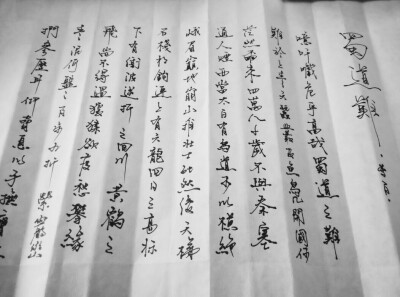 蜀道難·李白
噫吁戲危乎高哉蜀道之難
難於上青天蠶叢及魚鳧開國何
茫然爾來四萬八千歲不與秦塞
通人煙西當太白有鳥道可以橫絕
峨眉巔地崩山摧壯士死然後天梯
石棧相鉤連上有六龍回日之高標
下有衝波逆折之回川黃鶴之
飛尚不得過猿猱欲度愁攀緣
青泥何盤盤百步九折
縈巖巒
捫參歷井仰脅息以手撫膺